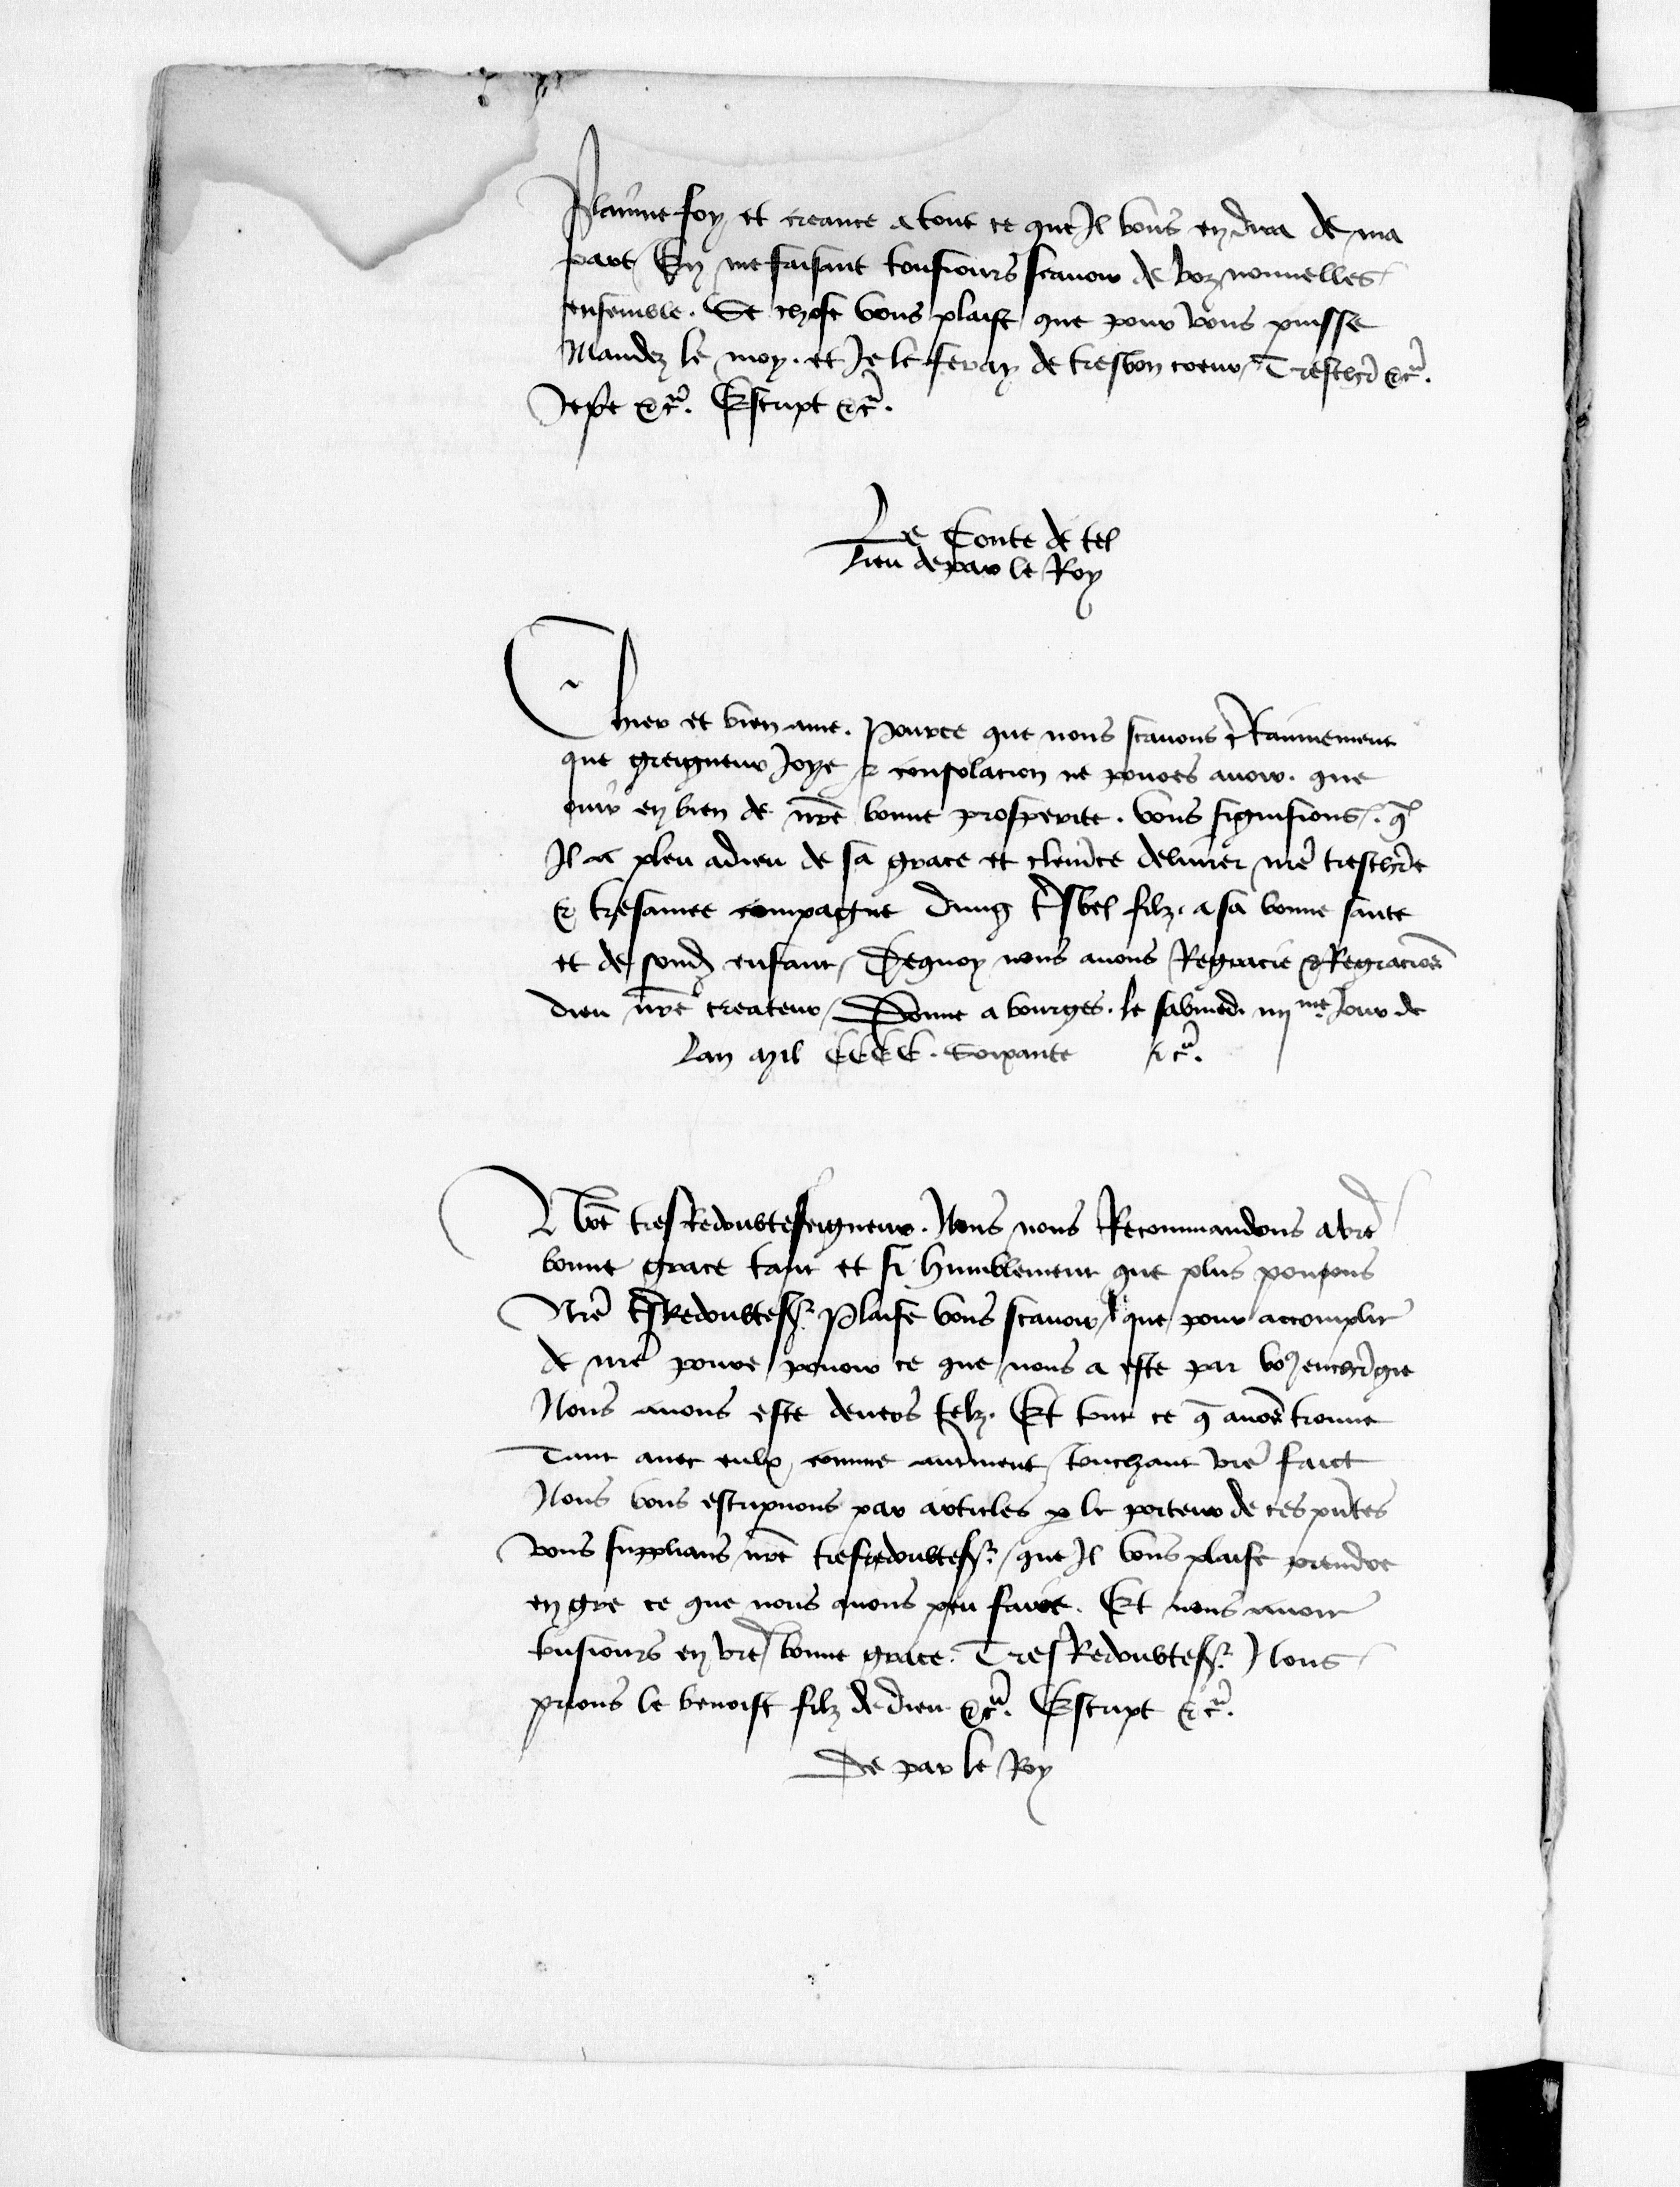 Plainne foy et creance a tout ce que Il vous en dira de ma
part / En me faisant tousiours scauoir de voz nouuelles /
ensemble . Se chose vous plaist que pour vous puisse
Mandez le moy . et Je le feray de tresbon coeur / Treschr̃ &cª .
Je pe &cª . Escript &cª .
Le Conte de tel
lieu de par le Roy
Chier et bien ame . Pource que nous scauons certainnement
que greigneur Joye & consolacion ne poues auoir . que
ouir en bien de nr̃e bonne prosperite . vous signifions / . q̃
Il a pleu a dieu de sa grace et clemẽce deliurer nr̃e treschr̃e
& tresamee compagne dung tr̃sbel filz . a sa bonne sante
et de sond enfant / Dequoy nous auons Regracie & Regracions
dieu nr̃e createur / Donne a bourges . le sabmedi iiij me Jour de
Lan mil CCCC . Soixante &cª .
Nr̃e tres Redoubte seigneur . Nous nous Recommandons a vr̃e
bonne grace tant et si humblement que plus pouons
Nr̃e tr̃s Redoubte sr . Plaise vous scauoir / que pour accomplir
de nr̃e poure pouoir ce que nous a este par vo9 enchr̃gie
Nous auons este deuers telz . Et tout ce q̃ auons trouue
Tant auec eulx / comme autr̃ment / touchant vr̃e faict
Nous vous escripuons par articles p le porteur de ces pñtes
vous supplians nr̃e tresredoubte sr . / que Il vous plaise prendre
en gre ce que nous auons peu faire . Et nous auoir
tusiours en vr̃e bonne grace . Tres Redoubte sr . Nous
prions le benoist filz de dieu &cª . Escript &cª .
De par le Roy